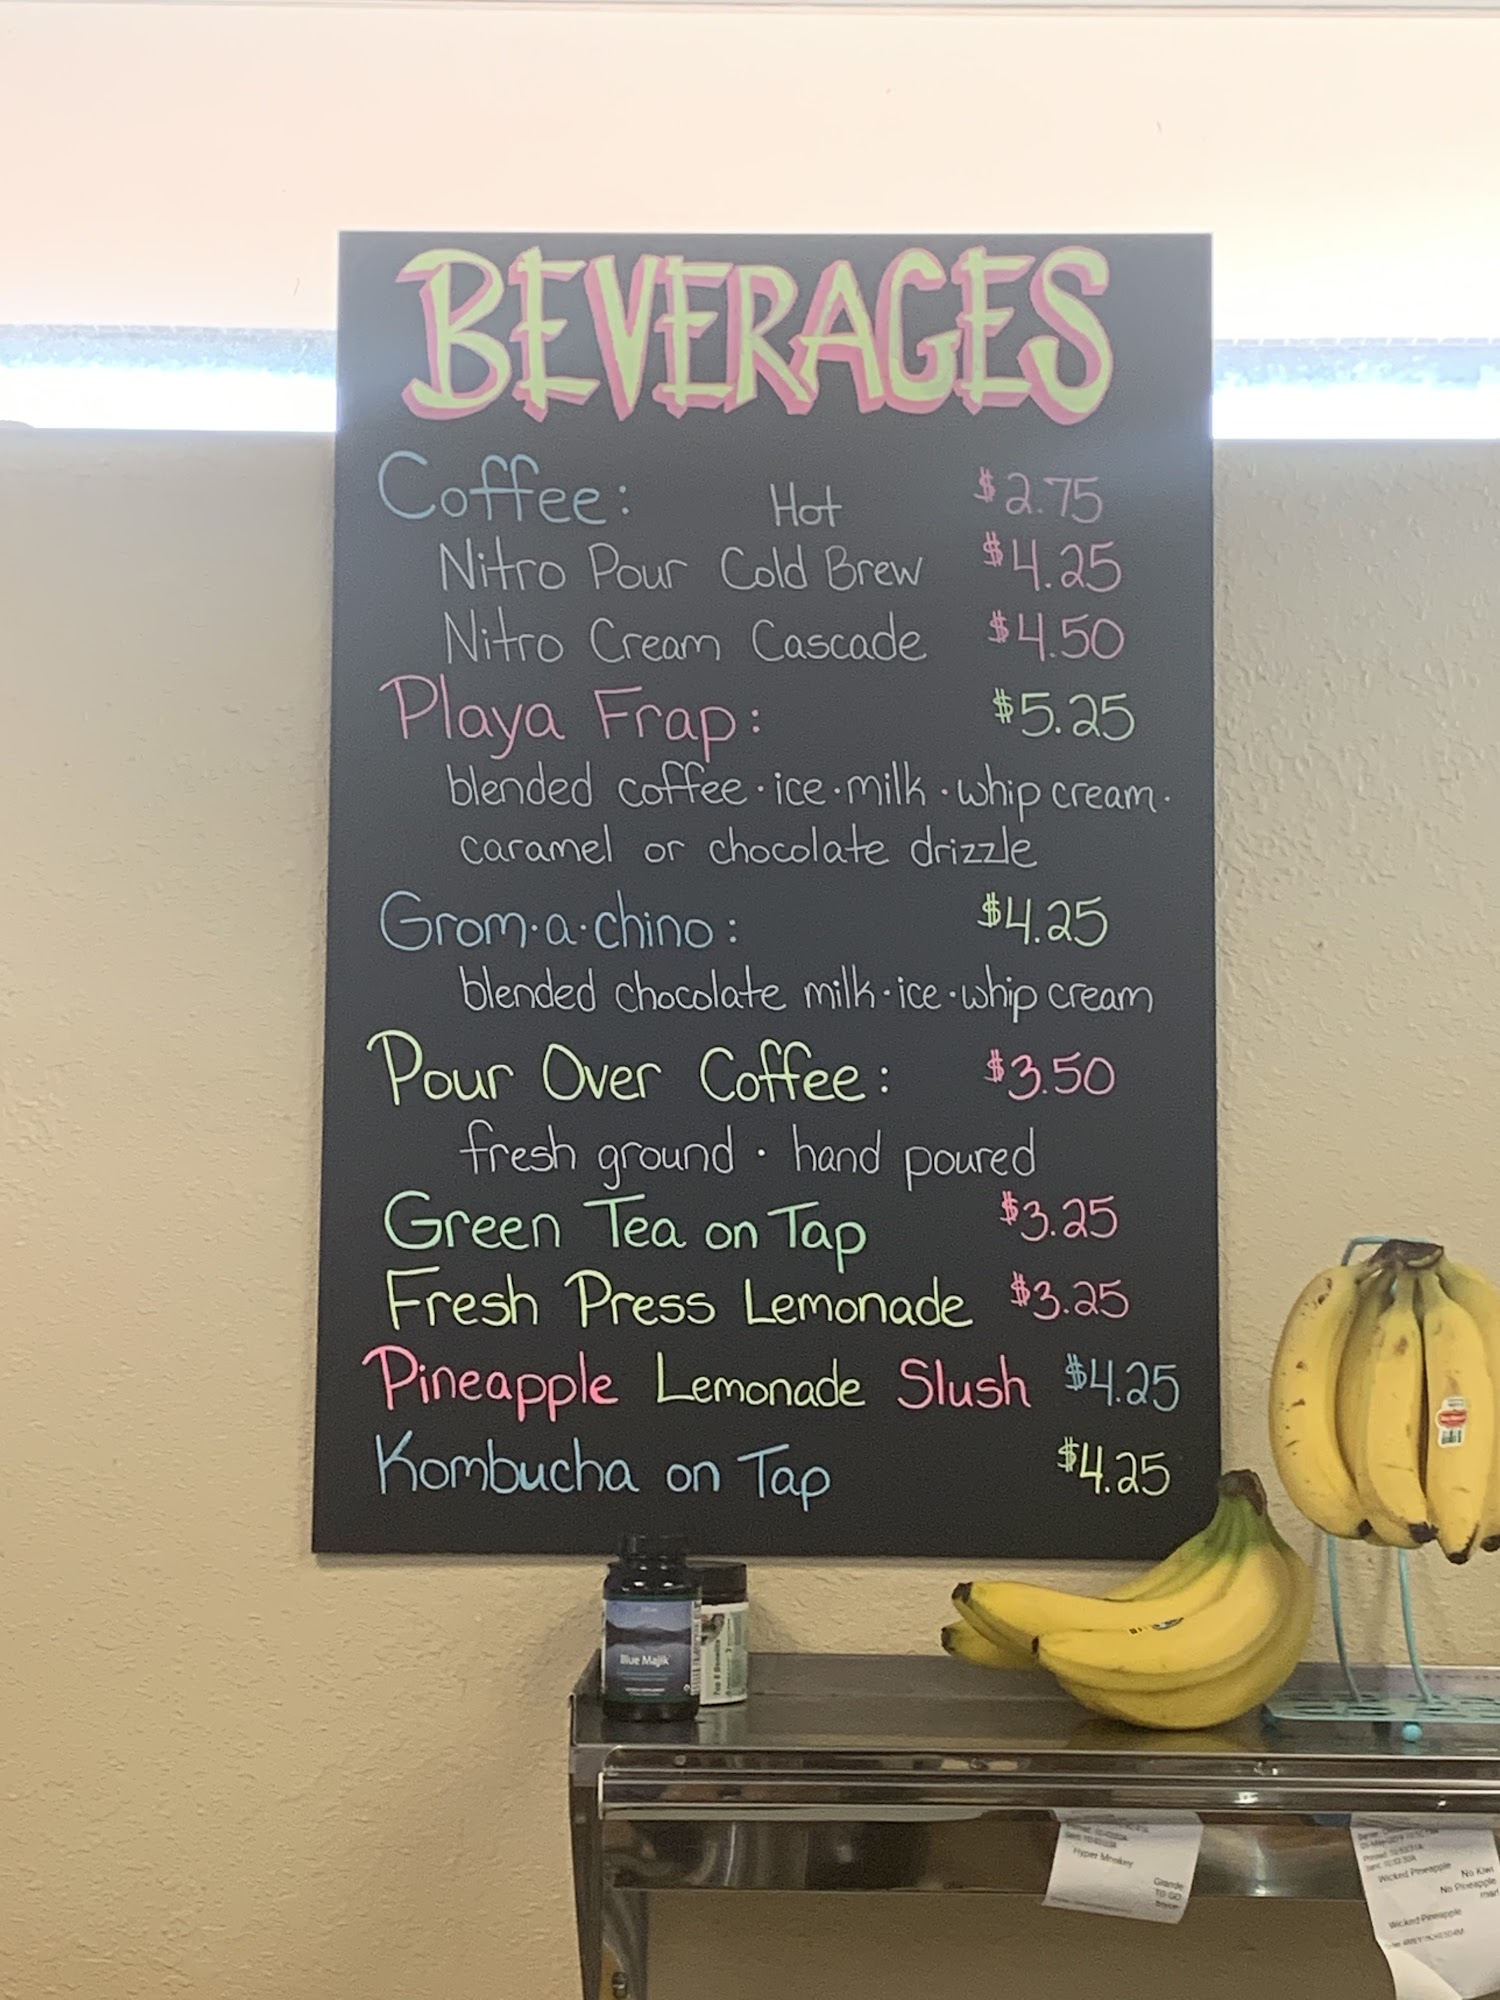 BEVERAGES
Coffee: Hot $2.75
Nitro Pour Cold Brew $4.25
Nitro Cream Cascade $4.50
Playa Frap: $5.25
blended coffee · ice · milk · whip cream ·
caramel or chocolate drizzle
Grom·a·chino: $4.25
blended chocolate milk · ice · whip cream
Pour Over Coffee: $3.50
fresh ground · hand poured
Green Tea on Tap $3.25
Fresh Press Lemonade $3.25
Pineapple Lemonade Slush $4.25
Kombucha on Tap $4.25
Blue Majik
Hyper Monkey
Grande
TO GO
Wicked Pineapple
No Kiwi
No Pineapple
Wicked Pineapple